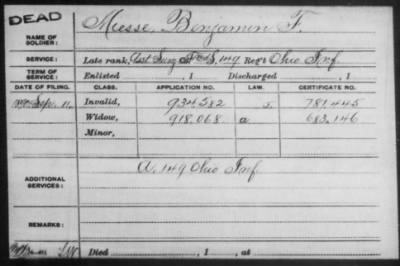 DEAD
NAME OF SOLDIER: Miesse, Benjamin F.
SERVICE: Late rank, Asst Surg F&S, 149 Reg't Ohio Inf.
TERM OF SERVICE: Enlisted , 1 Discharged , 1
DATE OF FILING. CLASS. APPLICATION NO. LAW. CERTIFICATE NO.
Sep. 11, Invalid, 934582 781445
Widow, 918,068 a 683,146
Minor,
ADDITIONAL SERVICES: A. 149 Ohio Inf.
REMARKS:
Died , 1 , at